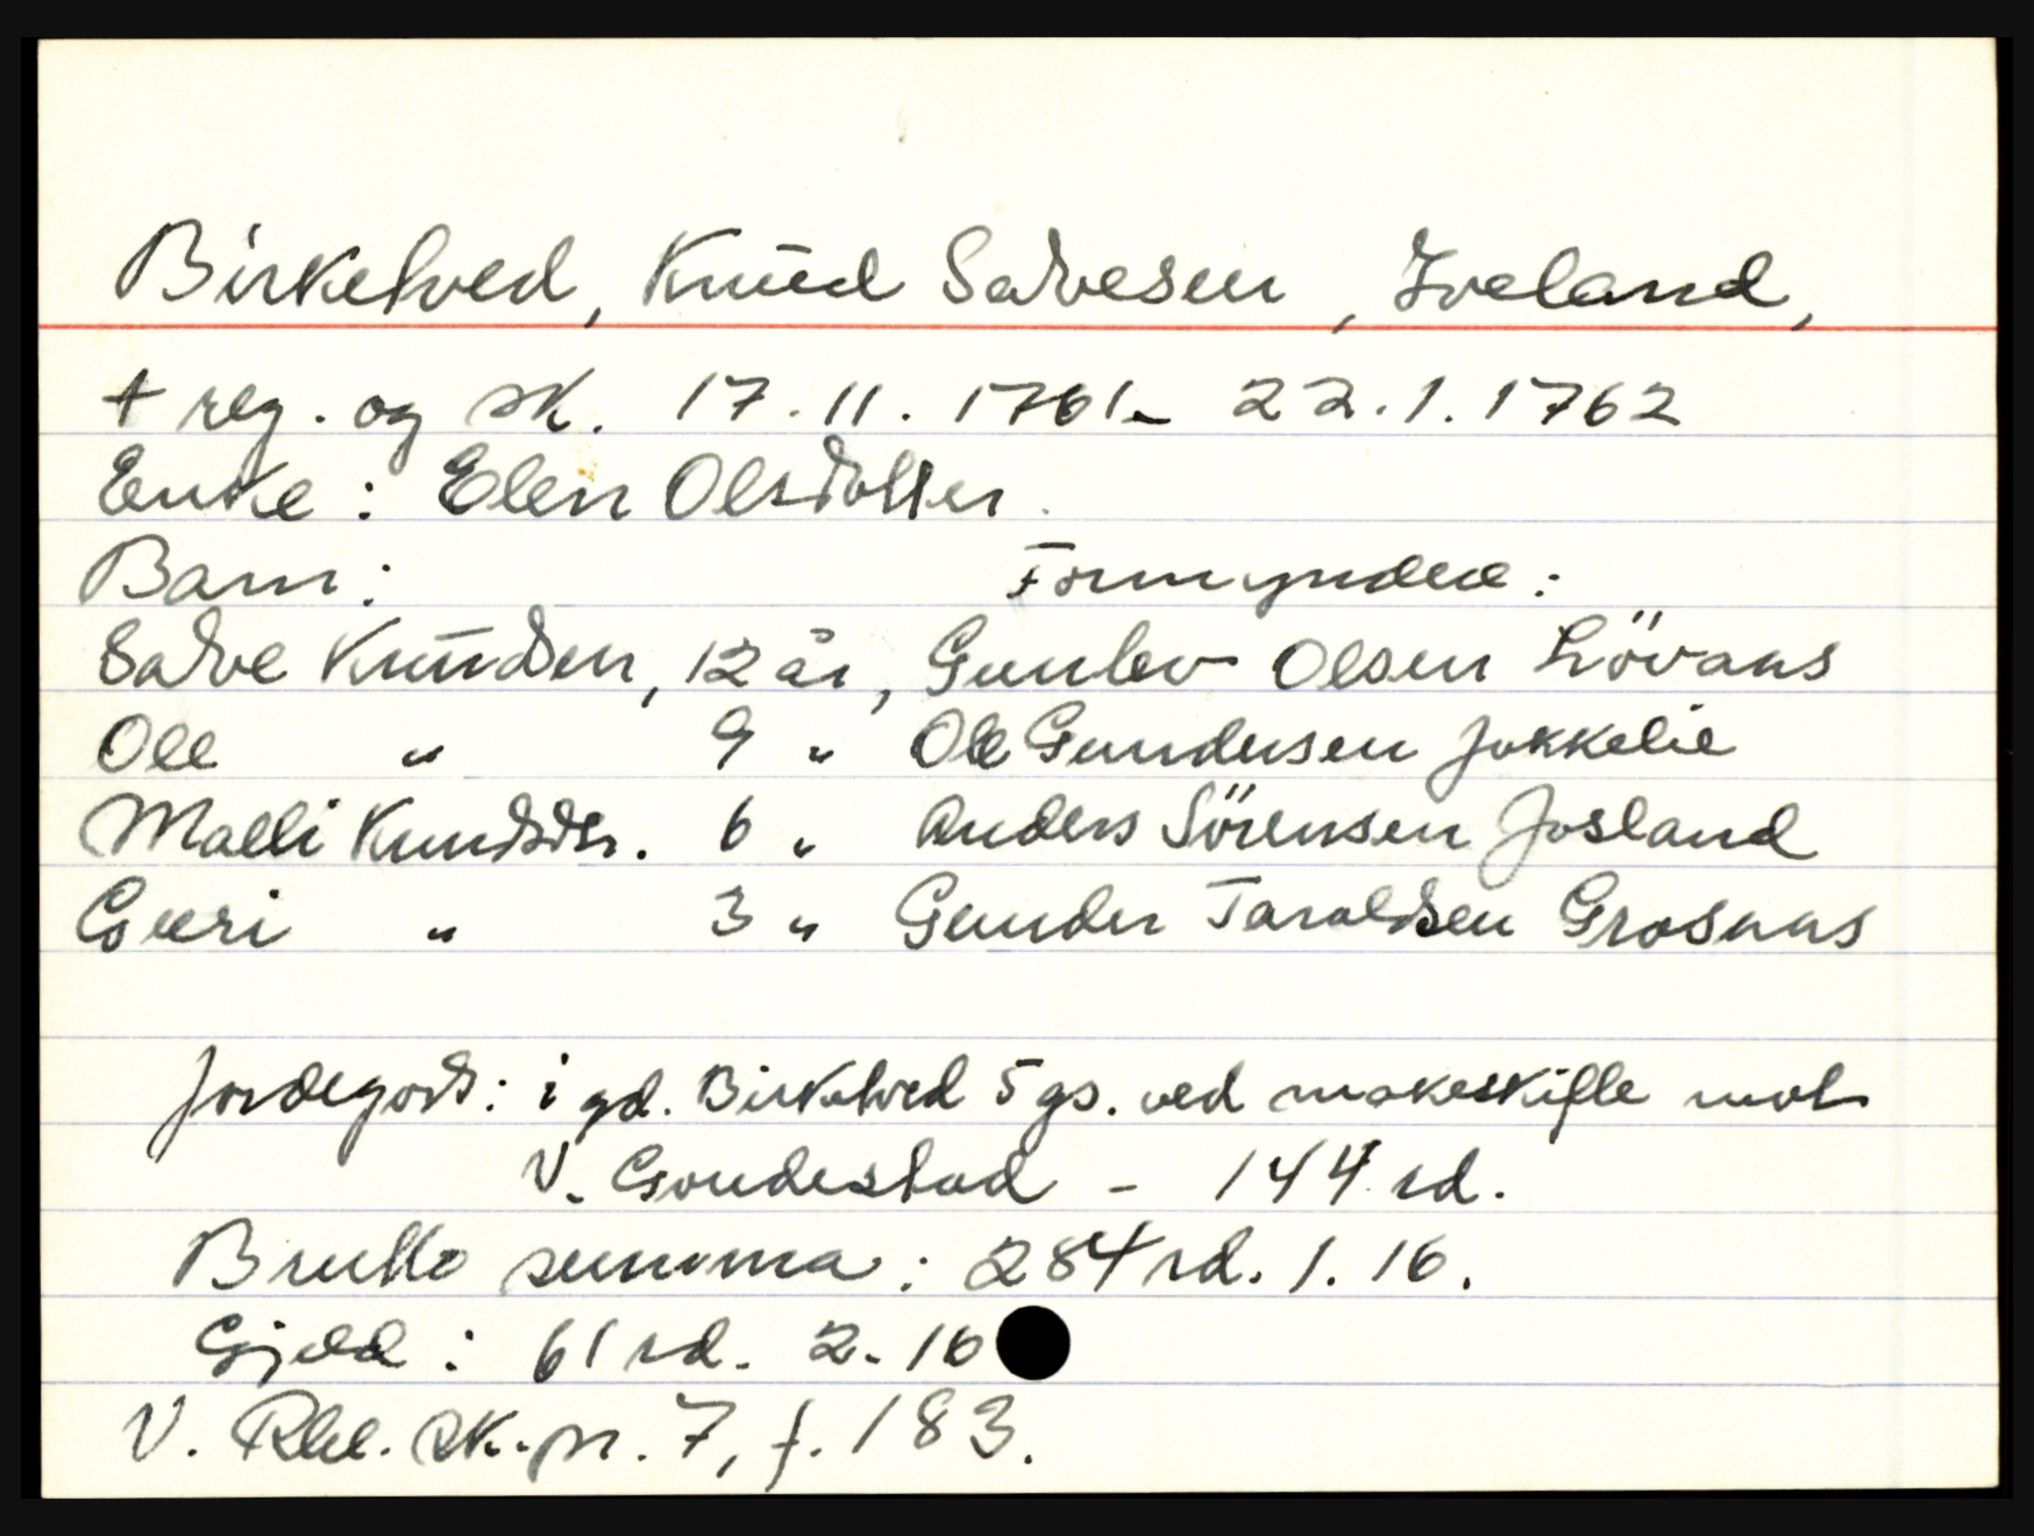 Birketved, Knud Salvesen, Iveland,
+ reg. og sk. 17.11.1761- 22.1.1762
Enke: Elen Olsdotter.
Barn: Formyndere:
Salve Knudsen, 12 år, Gunlev Olsen Lövaas
Ole " 9 " Ole Gundersen Jokkelie
Malli Knudsdtr. 6 " Anders Sörensen Josland
Guri " 3 " Gunder Taraldsen Grosaas
Jordegods: i gd. Birketved 5 gs. ved makeskifte mot
V. Goudestad - 144 rd.
Brutto summa: 284 rd. 1. 16.
Gjeld: 61 rd. 2. 16
V. Rbl. sk. pr. 7, f. 183.